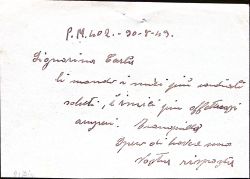 P.M. 402. - 30-5-43.
Signorina Carla
Vi mando i miei più cordiali
saluti, e i miei più affettuosi
auguri. Tranquilla
Spero di avere una
Vostra risposta